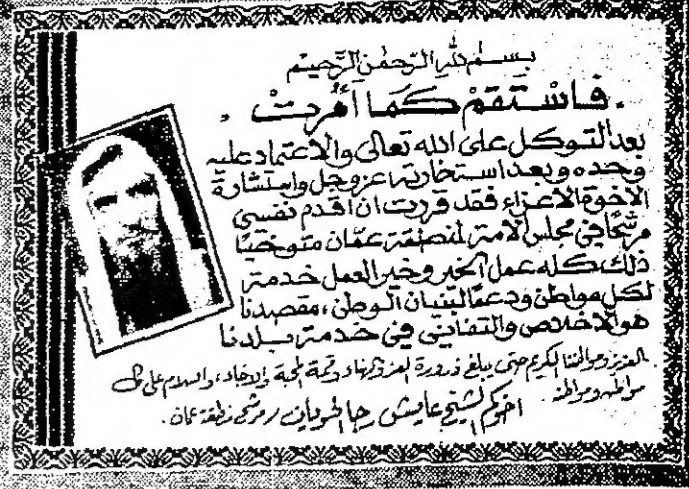 بسم الله الرحمن الرحيم
. فاستقم كما أمرت .
بعد التوكل على الله تعالى والاعتماد عليه
وحده وبعد استخارته عز وجل واستشارة
الاخوة الاعزاء فقد قررت ان اقدم نفسي
مرشحًا في مجلس الأمة لمنطقة عمّان متوخيًا
ذلك كله عمل الخير وخير العمل خدمة
لكل مواطن ودعمًا لبنيان الوطن، مقصدنا
هو الاخلاص والتفاني في خدمة بلدنا
العزيز ومواطننا الكريم حتى يبلغ ذرورة العز وقمة المحبة والسلام على كل
مواطن ومواطنة.
اخوكم الشيخ عايش / مرشح منطقة عمان.